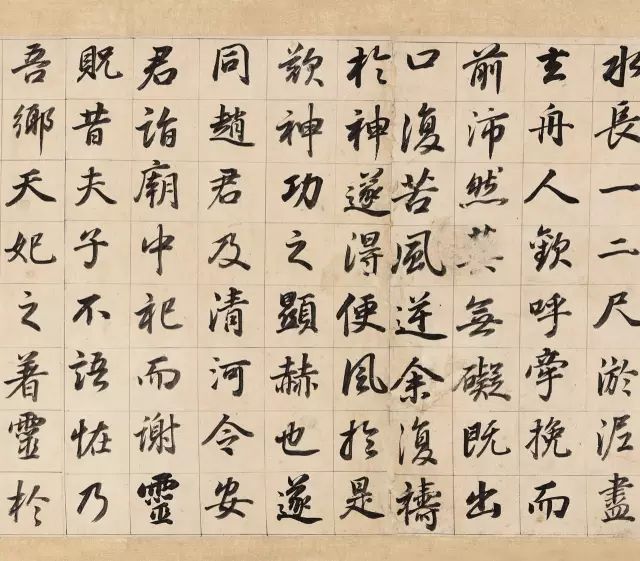 水長一二尺淤泥盡
去舟人歡呼牽挽而
前沛然其無礙既出
口復苦風逆余復禱
於神遂得便風於是
歎神功之顯赫也遂
同趙君及清河令安
君詣廟中祀而謝靈
貺昔夫子不語怪乃
吾鄉天妃之著靈於